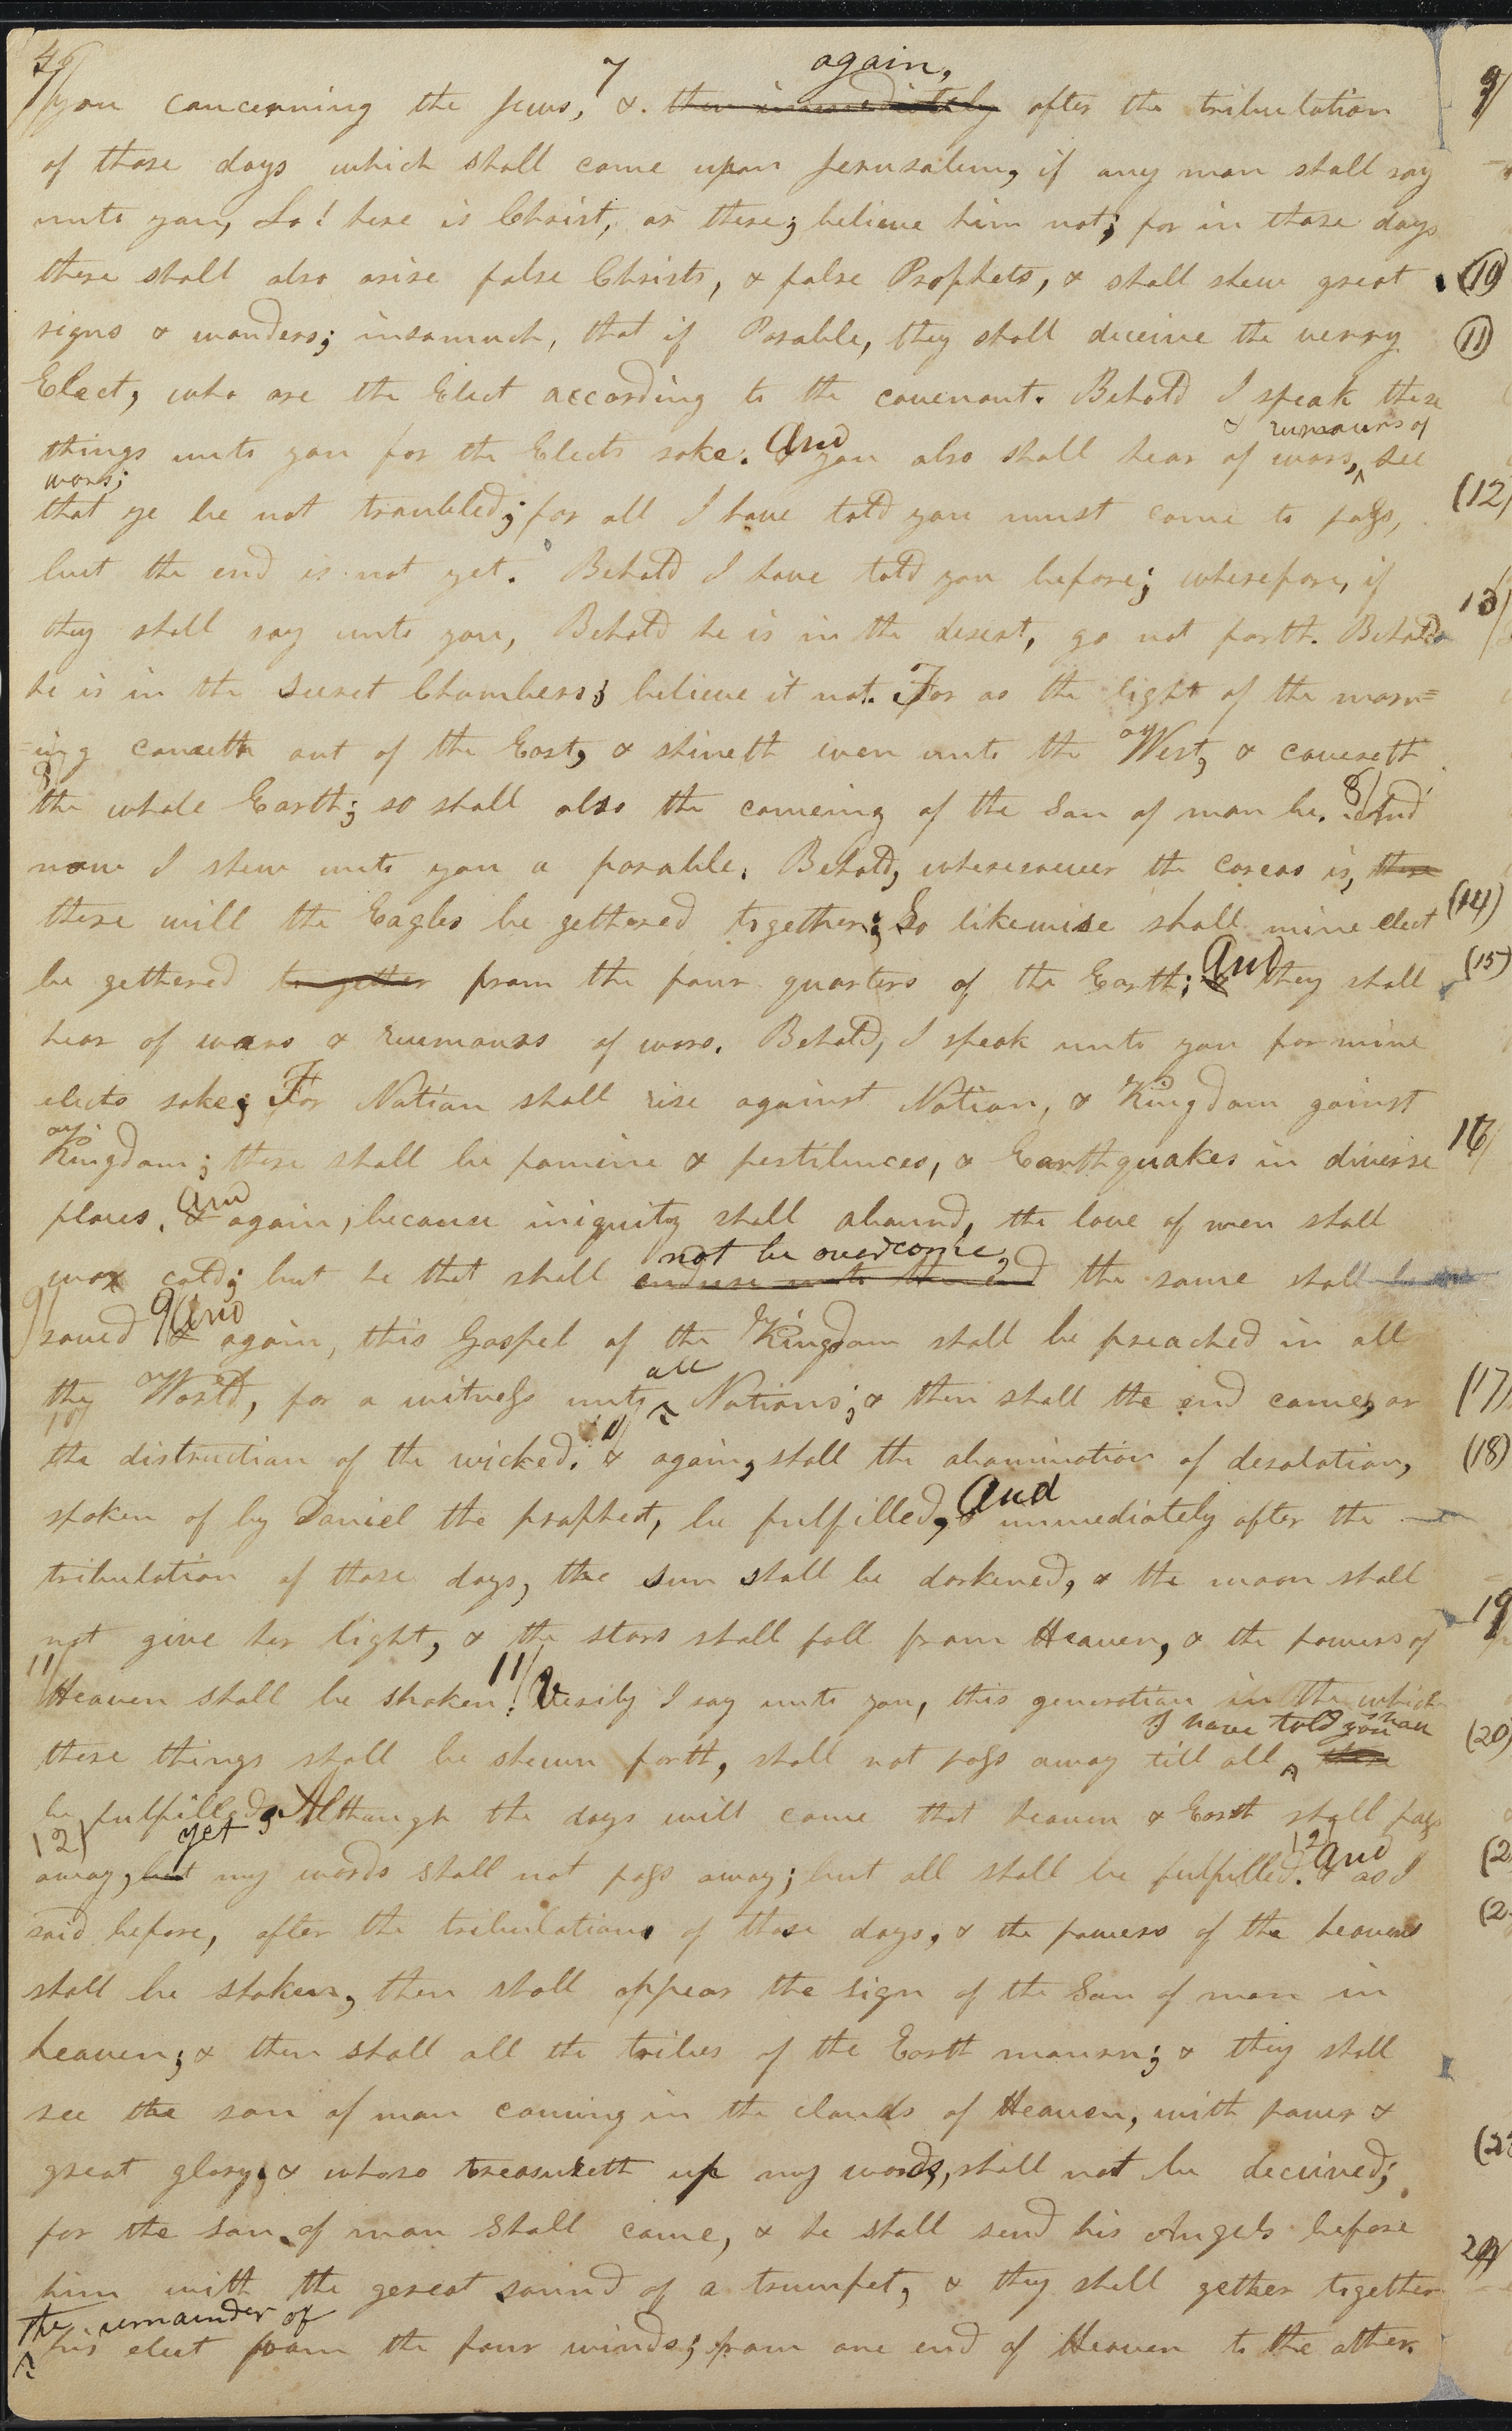 46
again,
you concerning the Jews, 7 &. then immediately after the tribulation
of those days which shall come upon Jerusalem, if any man shall say
unto you, Lo! here is Christ, or there; believe him not; for in those days
there shall also arise false Christs, & false Prophets, & shall shew great
signs & wonders; insomuch, that if Posable, they shall deceive the verry
Elect, who are the Elect according to the covenant. Behold I speak these
& rumours of
things unto you for the Elects sake. And you also shall hear of wars, ^ see
wars;
that ye be not troubled; for all I have told you must come to pass,
but the end is not yet. Behold I have told you before; wherefore, if
they shall say unto you, Behold he is in the desert, go not forth. Behold
he is in the secret Chambers; believe it not. For as the light of the morn=
=ing cometh out of the East, & shineth even unto the West, & covereth
8
the whole Earth; so shall also the comeing of the Son of man be. 8/ And
now I shew unto you a parable. Behold, wheresoever the carcas is, there
there will the Eagles be gethered together; So likewise shall mine elect
be gethered to gether from the four quarters of the Earth; And they shall
hear of wars & rumours of wars. Behold, I speak unto you for mine
elects sake; For Nation shall rise against Nation, & Kingdom gainst
Kingdom; there shall be famine & pestilences, & Earthquakes in diverse
places. And again, because iniquity shall abound, the love of men shall
not be overcome,
wax cold; but he that shall endure unto the end the same shall be
9/ saved 9/ And again, this Gospel of the Kingdom shall be preached in all
all
the World, for a witness unto ^ Nations; & then shall the end come, or
10/
the distruction of the wicked. 10/ & again, shall the abomination of desolation,
spoken of by Daniel the prophet, be fulfilled, And immediately after the
tribulation of those days, the sun shall be darkened, & the moon shall
not give her light, & the stars shall fall from Heaven, & the powers of
11/
Heaven shall be shaken. 11/ Verily I say unto you, this generation in the which
I have told you shall
these things shall be shewn forth, shall not pass away till all ^ these
be fulfilled. Although the days will come that heaven & Earth shall pass
12/ yet
away, but my words shall not pass away; but all shall be fulfilled. 12/ And as I
said before, after the tribulations of those days, & the powers of the heavens
shall be shaken, then shall appear the sign of the Son of man in
heaven; & then shall all the tribes of the Earth mourn; & they shall
see the son of man coming in the clouds of Heaven, with power &
great glory; & whoso treasureth up my words, shall not be deceived;
for the son of man shall come, & he shall send his Angels before
him with the gereat sound of a trumpet, & they shall gether together
the remainder of
^ his elect from the four winds; from one end of Heaven to the other.
9/
(10)
(11)
(12)
13/
(14)
(15)
16/
(17)
(18)
19
(20)
(2
(2
(23
24/